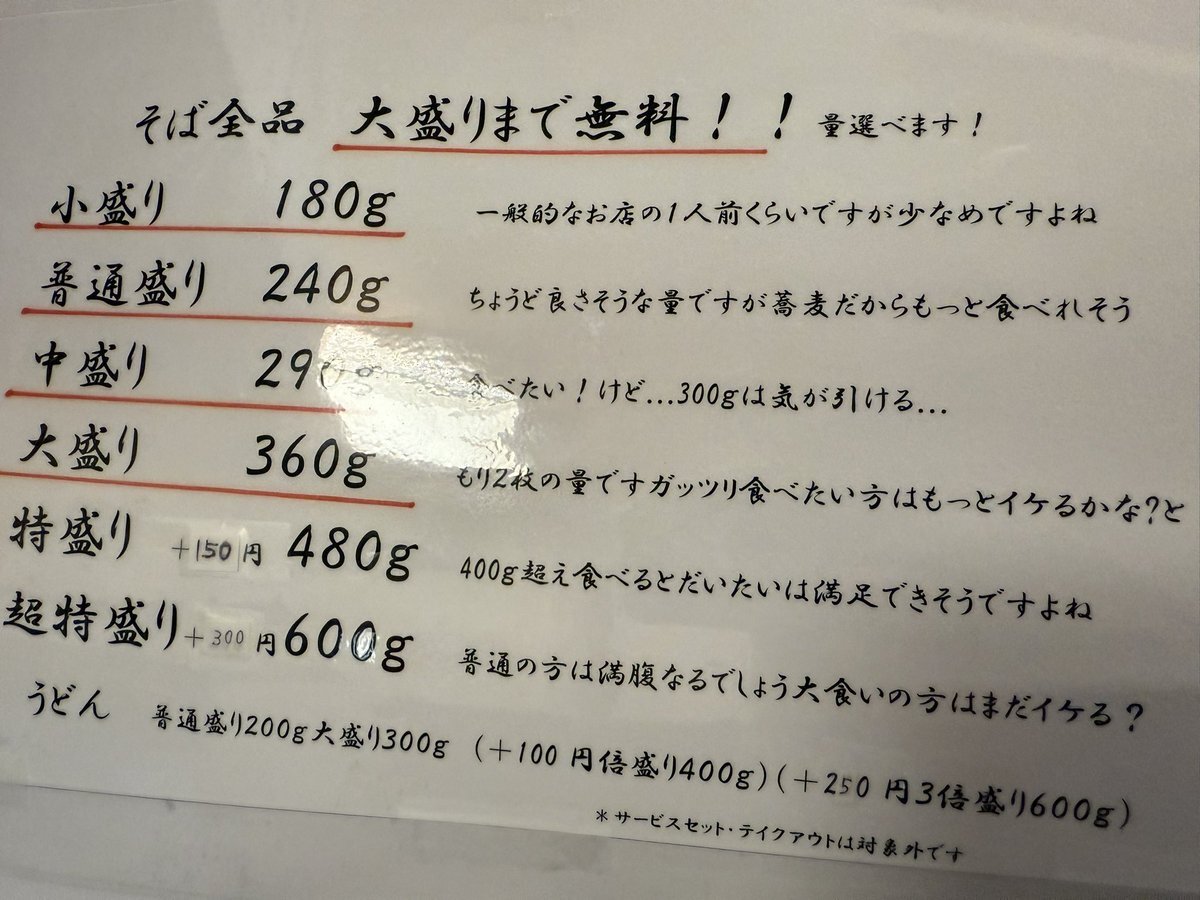 そば全品 大盛りまで無料！！ 量選べます！
小盛り 180g 一般的なお店の1人前くらいですが少なめですよね
普通盛り 240g ちょうど良さそうな量ですが蕎麦だからもっと食べれそう
中盛り 290g 食べたい！けど...300gは気が引ける...
大盛り 360g もり2枚の量ですガッツリ食べたい方はもっとイケるかな?と
特盛り +150円 480g 400g超え食べるとだいたいは満足できそうですよね
超特盛り +300円 600g 普通の方は満腹なるでしょう大食いの方はまだイケる?
うどん 普通盛り200g大盛り300g (+100円倍盛り400g)(+250円3倍盛り600g)
*サービスセット・テイクアウトは対象外です